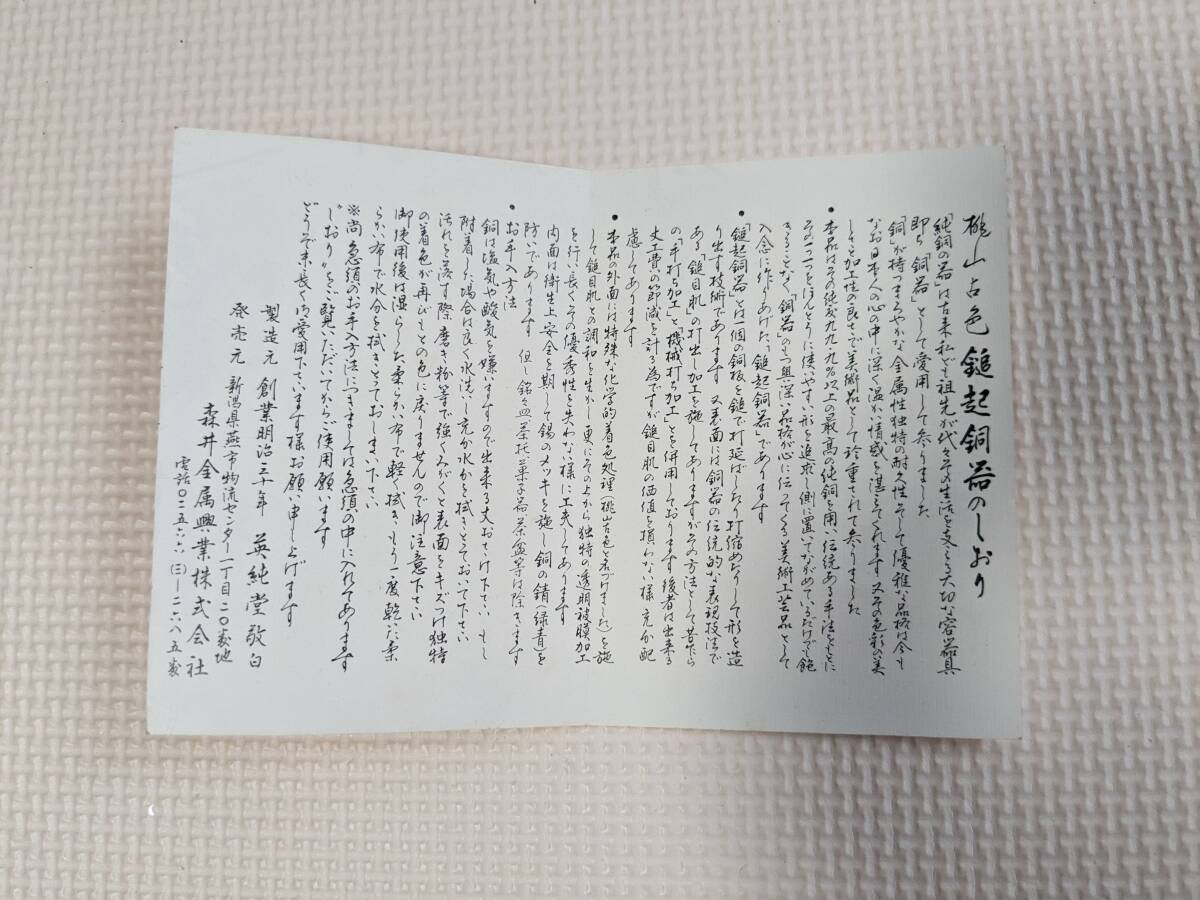 桃山古色 鎚起銅器のしおり
「純銅の器」は古来私ども祖先が代々その生活を支える大切な容器具
即ち「銅器」として愛用して参りました
「銅」が持つまろやかな金属性独特の耐久性そして優雅な品格は今も
なお日本人の心の中に深く温かい情感を湛えてくれます 又その色彩の美
しさと加工性の良さで美術品として珍重されて参りました
• 本品はその純度九九.九%以上の最高の純銅を用い伝統ある手法をもとに
その一つ一つをほんとうに使いやすい形を追求し側に置いてながめているだけでも飽
きることなく「銅器」のもつ奥深い品格が心に伝ってくる美術工芸品として
入念に作りあげた「鎚起銅器」であります
• 「鎚起銅器」とは一個の銅板を鎚で打延ばしたり打縮めたりして形を造
り出す技術であります 又表面には銅器の伝統的な表現技法で
ある「鎚目肌」の打出し加工を施してありますがその方法として昔から
の「手打ち加工」と「機械打ち加工」とを併用しております 後者は出来る
丈工費の節減を計る為ですが鎚目肌の価値を損わない様充分配
慮してあります
• 本品の外面には特殊な化学的着色処理(桃山古色と名づけました)を施
して鎚目肌との調和を生かし更にその上から独特の透明被膜加工
を行い長くその優秀性を失わない様に工夫してあります
内面は衛生上安全を期して錫のメッキを施し銅の錆(緑青)を
防いであります 但し銘々皿 茶托 菓子器 茶盆等は除きます
• お手入方法
銅は塩気や酸気を嫌いますので出来る丈おさけ下さい もし
附着した場合は良く水洗し充分水分を拭きとっておいて下さい
汚れを落す際磨き粉等で強くみがくと表面をキズつけ独特
の着色が再びもとの色に戻りませんので御注意下さい
御使用後は湿らした柔らかい布で軽く拭き もう一度乾いた柔
らかい布で水分を拭きとっておしまい下さい
※尚 急須のお手入方法につきましては急須の中に入れてあります
"しおり"をご覧いただいてからご使用願います
どうぞ末長く御愛用下さいます様お願い申し上げます
製造元 創業明治三十年 英純堂敬白
発売元 新潟県燕市物流センター二丁目二〇番地
森井金属興業株式会社
電話〇二五六六(三)-二六八五番